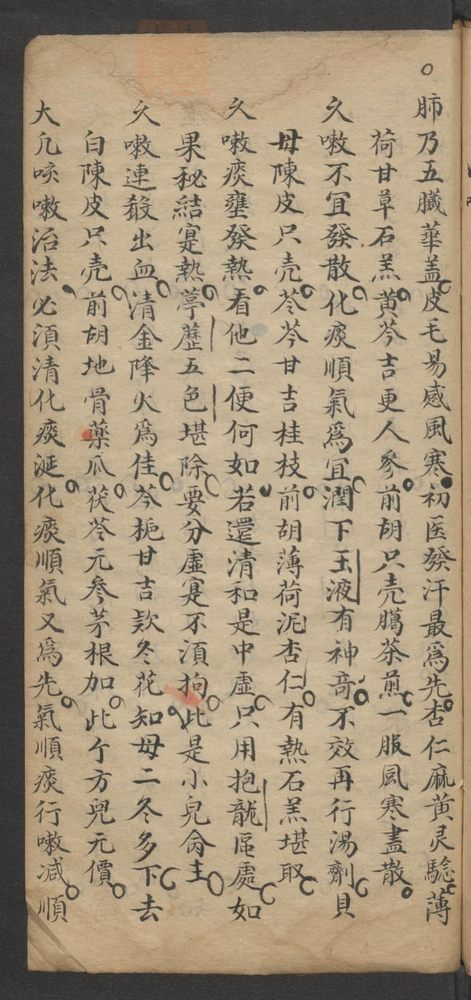 肺乃五臟華盖皮毛易感風寒初医發汗最爲先杏仁麻黃灵驗薄
荷甘草石羔黃芩吉更人參前胡只壳臈茶煎一服風寒盡散
久嗽不宜發散化痰順氣爲宜潤下玉液有神竒不效再行湯劑貝
母陳皮只壳苓芩甘吉桂枝前胡薄荷泥杏仁有熱石羔堪取
久嗽痰壅發熱看他二便何如若還清和是中虛只用抱龍區處如
果秘結寔熱葶藶五色堪除要分虛寔不湏拘此是小兒侖主
久嗽連殺出血清金降火爲佳芩梔甘吉欵冬花知母二冬多下去
白陳皮只壳前胡地骨藥瓜茯苓元參茅根加此个方兒元價
大凢咳嗽治法必湏清化痰涎化痰順氣又爲先氣順痰行嗽减順